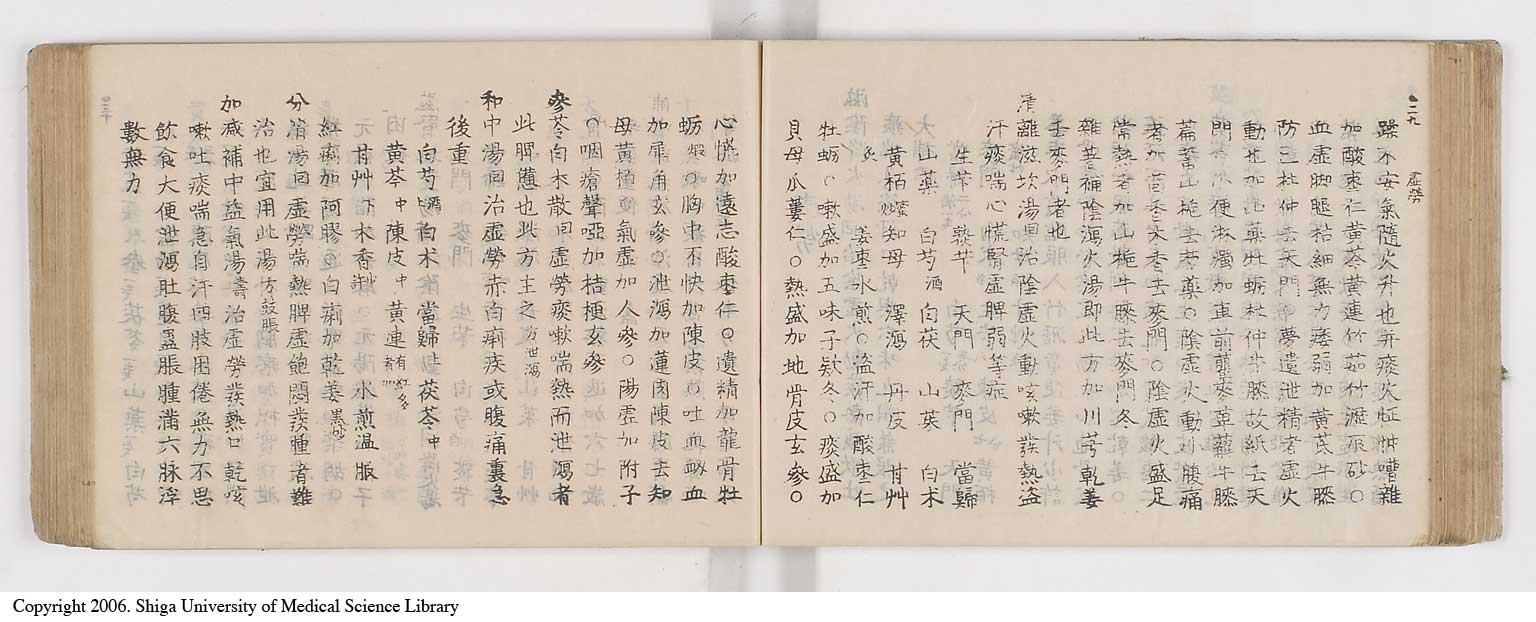 二九 虚勞
躁不安氣隨火升也并痰火怔忡嘈雜
加酸枣仁黄芩黄連竹茹竹瀝辰砂○
血虚脚腿枯細無力痿弱加黄芪牛膝
防己杜仲去天門○夢遺泄精者虚火
動也加此薬牡蛎杜仲牛膝故紙去天
門○小便淋濁加車前瞿麥萆薢牛膝
萹蓄山梔去芍薬○陰虚火動小腹痛
者加茴香木香去麥門○陰虚火盛足
常熱者加山梔牛膝去麥門冬
雜著補陰瀉火湯即此方加川芎乾姜
去麥門者也
清離滋坎湯 回 治陰虚火動咳嗽發熱盗
汗痰喘心慌腎虚脾弱等症
生苄 熟苄 天門 麥門 當歸
山薬 白芍 酒 白茯 山茱 白术
黄栢 蜜 知母 澤瀉 丹皮 甘艸
炙 姜枣水煎○盗汗加酸枣仁
牡蛎○嗽盛加五味子欵冬○痰盛加
貝母瓜蔞仁○熱盛加地骨皮玄参○
心慌加遠志酸枣仁○遺精加龍骨牡
蛎 煅 ○胸中不快加陳皮○吐血衄血
加犀角玄参○泄瀉加蓮肉陳皮去知
母黄栢○氣虚加人参○陽虚加附子
○咽瘡聲啞加桔梗玄参
参苓白术散 回 虚勞痰嗽喘熱而泄瀉者
此脾憊也此方主之 方泄瀉
和中湯 回 治虚勞赤白痢疾或腹痛裏急
後重
白芍 白术 當歸 茯苓 中
黄芩 中 陳皮 中 黄連 有紅多
甘艸 下 木香 水煎温服
紅痢加阿膠 白痢加乾姜 黒炒
分消湯 回 虚勞喘熱脾虚飽悶發腫者難
治也宜用此湯 方鼓脹
加减補中益氣湯 壽 治虚勞發熱口乾咳
嗽吐痰喘急自汗四肢困倦無力不思
飲食大便泄瀉肚腹蠱脹腫滿六脉浮
數無力